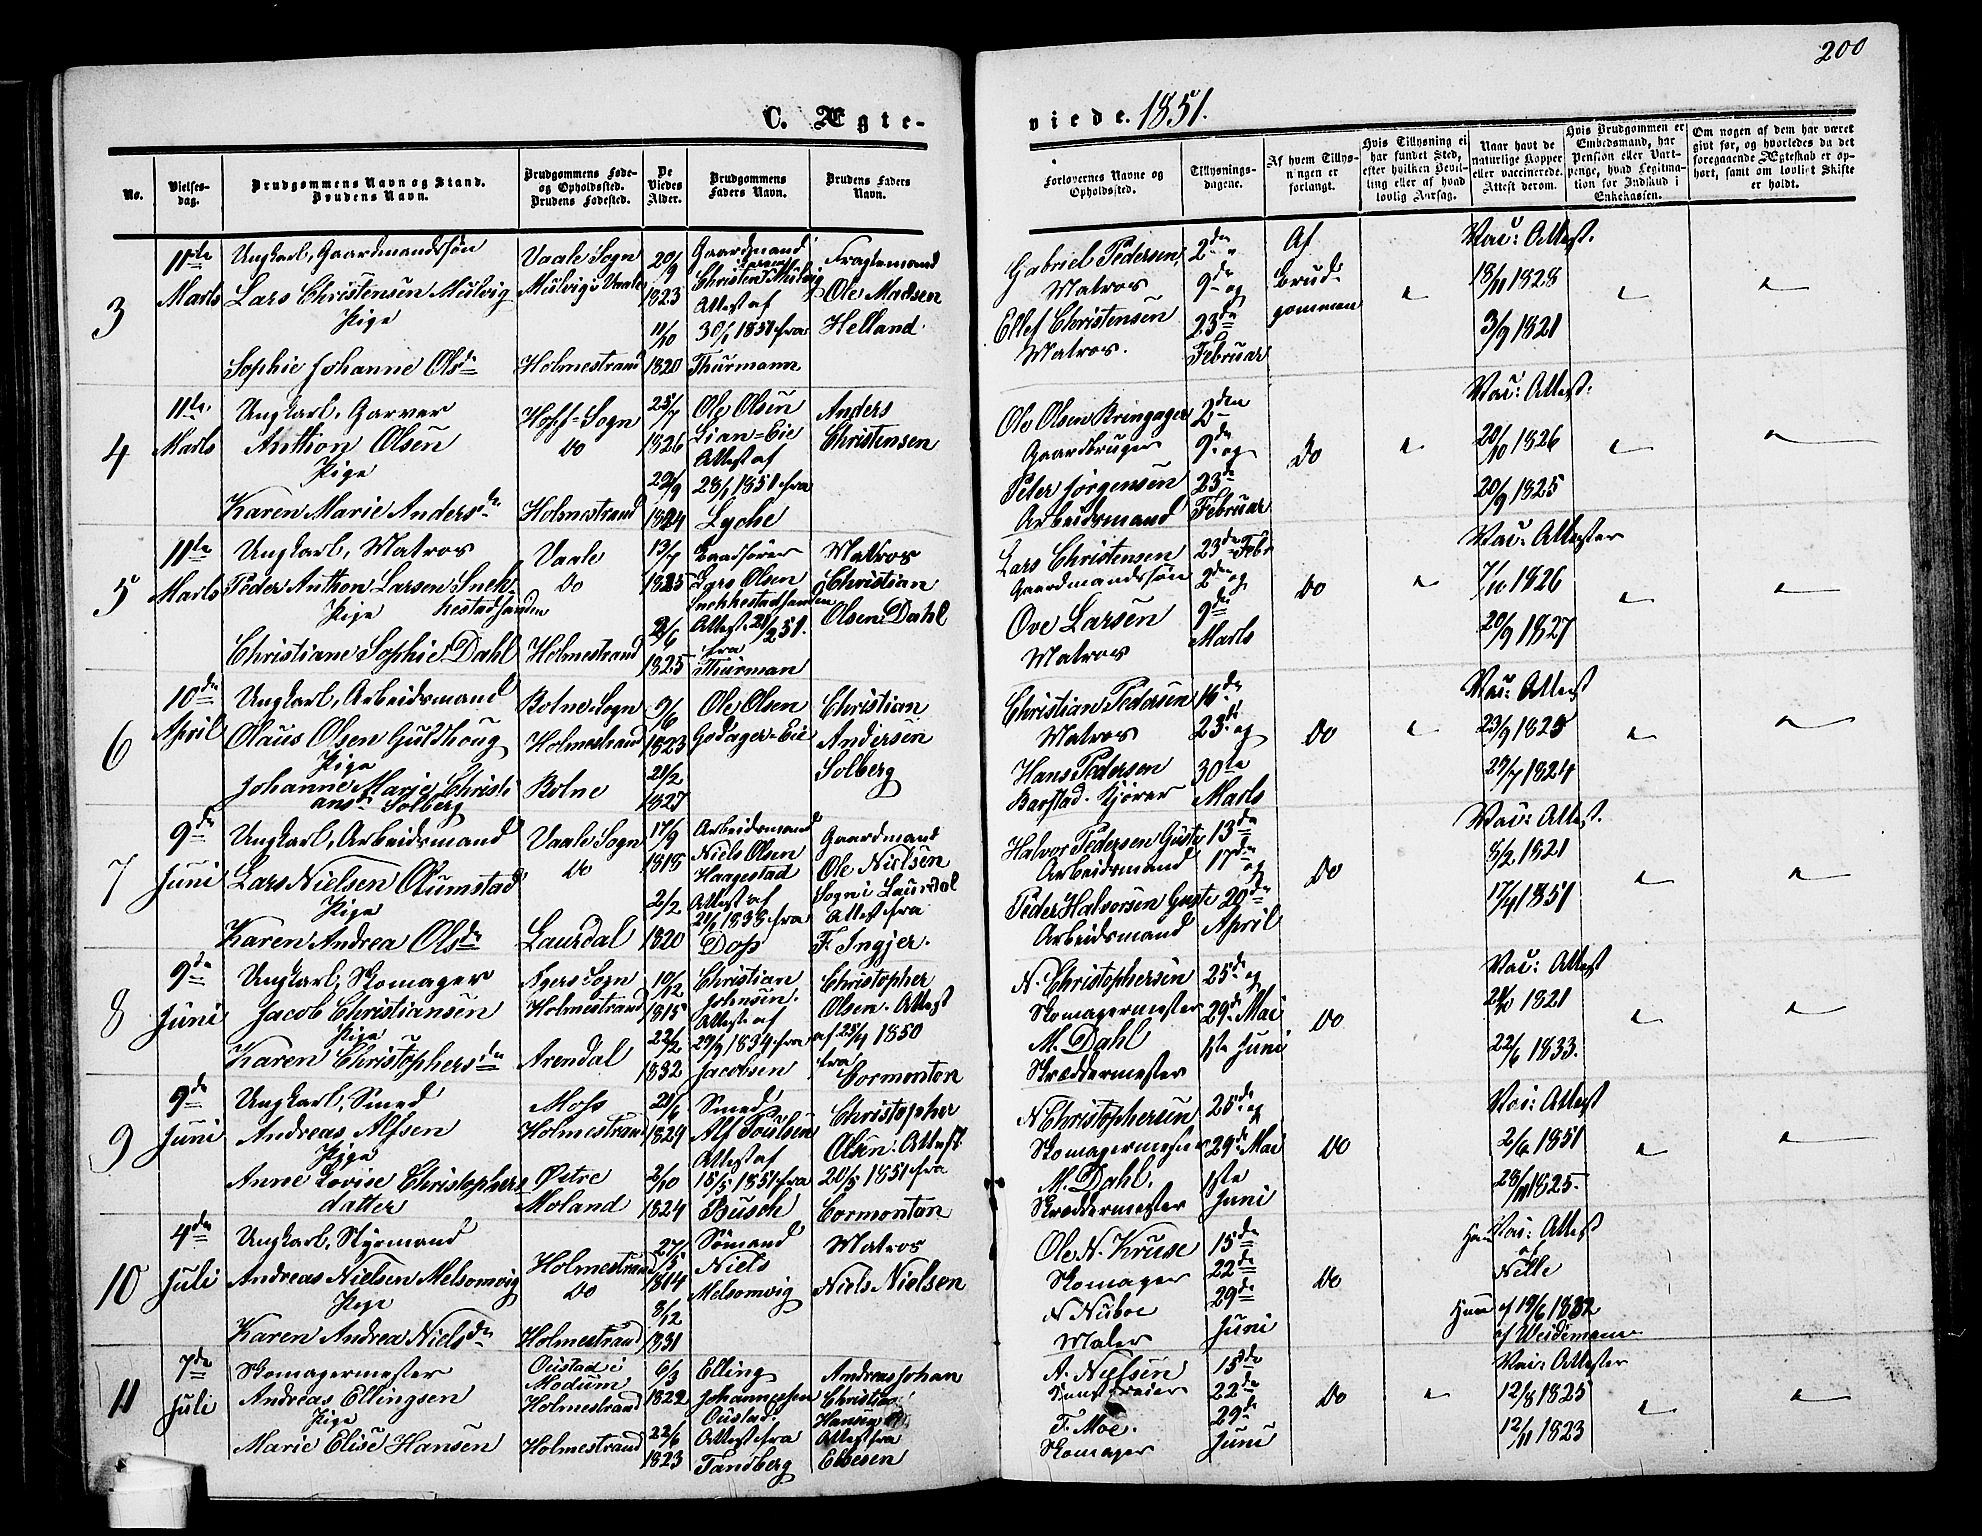 200
C. Ægte-
viede. 1851.
No.
Vielses-
dag.
Brudgommens Navn og Stand.
Brudens Navn.
Brudgommens Føde-
og Opholdssted.
Brudens Fødested.
De
Viedes
Alder.
Brudgommens
Faders Navn.
Brudens Faders
Navn.
Forlovernes Navne og
Opholdssted.
Tillysnings-
dagene.
Af hvem Tillys-
ningen er
forlangt.
Hvis Tillysning ei
har fundet Sted,
efter hvilken Bevil-
ling eller af hvad
lovlig Aarsag.
Naar havt de
naturlige Kopper
eller vaccinerede.
Attest derom.
Hvis Brudgommen er
Embedsmand, har
Pension eller Vart-
penge, hvad Legitima-
tion for Indskud i
Enkekassen.
Om nogen af dem har været
givt før, og hvorledes da det
foregaaende Ægteskab er op-
hørt, samt om lovligt Skifte
er holdt.
3
11te
Marts
Ungkarl, Gaardmandssøn
Lars Christensen Mulvig
Pige
Sophie Johanne Olsdr
Vaale Sogn
Mulvig i Vaale
Holmestrand
20/9
1823
11/10
1820
Gaardmand
Christen Mulvig
Attest af
30/1 1851 fra
Thurmann
Fragtemand
Ole Madsen
Helland
Gabriel Pedersen,
Matros
Ellef Christensen
Matros.
2den
9de og
23de
Februar
Af
Brud-
gommen
Vac: Attest.
18/11 1828
3/9 1821
4
11te
Marts
Ungkarl, Garver
Anthon Olsen
Pige
Karen Marie Andersdr
Hoff-Sogn
Do
Holmestrand
25/7
1826
22/9
1824
Ole Olsen
Lian-Eie
Attest af
28/1 1851 fra
Lyche
Anders
Christensen
Ole Olsen Kringager
Gaardbruger
Peter Jørgensen
Arbeidsmand
2den
9de og
23de
Februar
Do
Vac: Attest.
20/10 1826
20/9 1825
5
11te
Marts
Ungkarl, Matros
Peder Anthon Larsen Snek-
Pige kestadstranden
Christiane Sophie Dahl
Vaale
Do
Holmestrand
13/7
1825
2/6
1825
Lars Olsen
Attest 21/2 51.
fra
Thurman
Matros
Christian
Olsen Dahl
Lars Christensen
Gaardmandssøn
Ove Larsen
Matros
23de Febr
2den og
9de
Marts
Do
Vac: Attester
7/10 1826
20/9 1827
6
10de
April
Ungkarl, Arbeidsmand
Olaus Olsen Guldhoug
Pige
Johanne Marie Christi
ansdr Solberg
Botne Sogn
Holmestrand
Botne
9/6
1823
21/2
1827
Ole Olsen
Godager-Eie
Christian
Andersen
Solberg
Christian Pedersen
Matros
Hans Pedersen
Barstad. Kjører
16de
23de og
30te
Marts
Do
Vac: Attest
23/9 1825
29/7 1824
7
9de
Juni
Ungkarl, Arbeidsmand
Lars Nielsen Rumstad
Pige
Karen Andrea Olsdr
Vaale Sogn
Do
Laurdal
17/9
1818
2/2
1820
Arbeidsmand
Niels Olsen
Haagestad
Attest af
21/6 1838 fra
Doss
Gaardmand
Ole Nielsen
Sogn i Laurdal
Attest fra
F. Ingjer.
Halvor Pedersen Guste
Arbeidsmand
Peder Halvorsen Guste
Arbeidsmand
13de
17de og
20de
April
Do
Vac: Attest.
8/2 1821
17/4 1851
8
9de
Juni
Ungkarl, Skomager
Jacob Christiansen
Pige
Karen Christophersdr
Agers Sogn
Holmestrand
Arendal
10/12
1815
22/2
1832
Christian
Johnsen.
Attest af
29/9 1834 fra
Jacobsen
Christopher
Olsen. Attest
af 25/4 1850
fra
Cormontan
N. Christophersen
Skomagermester
M. Dahl
Skræddermester
25de og
29de Mai
1ste Juni
Do
Vac: Attest
21/10 1821
22/6 1833.
9
9de
Juni
Ungkarl, Smed
Andreas Alfsen
Pige
Anne Lovise Christophers
datter
Moss
Holmestrand
Østre
Moland
21/6
1829
2/10
1824
Smed
Alf Poulsen
Attest af
15/5 1851 fra
Busch
Christopher
Olsen: Attest
20/5 1851 fra
Cormontan
N Christophersen
Skomagermester
M. Dahl.
Skræddermester
25de og
29de Mai
1ste
Juni
Do
Vac: Attest
2/6 1851
28/11 1825.
10
4de
Juli
Ungkarl, Styrmand
Andreas Nielsen Melsomvig
Pige
Karen Andrea Nielsdr
Holmestrand
Do
Holmestrand
27/5
1814
8/12
1831
Sømand
Niels
Melsomvig
Matros
Niels Nielsen
Ole N. Kruse
Skomager
N Nuboe
Maler
15de
22de
29de
Juni
Do
Han Vac: Attest
af
Nelle
Hun af 19/6 1832
af Weidemann
11
7de
Juli
Skomagermester
Andreas Ellingsen
Pige
Marie Elise Hansen
Oustad i
Modum
Holmestrand
Holmestrand
6/3
1822
22/6
1823
Elling
Johannesen
Oustad.
Attest fra
Tandberg
Andreas Johan
Christian
Hansen
Attest fra
Ebbesen
A. Nielsen
F. Moe.
Skomager
15de
22de
29de
Juni
Do
Vac: Attester
12/8 1825
12/11 1823